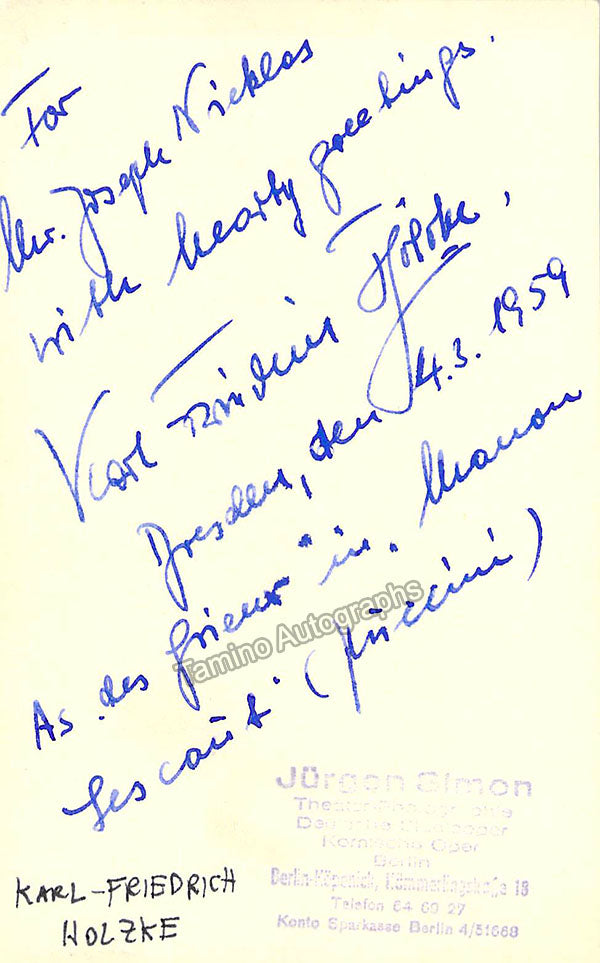 For
Mr. Joseph Nicklas
with hearty greetings.
Karl-Friedrich Hölzke,
Dresden, den 4.3.1959
As "des Grieux" in "Manon
Lescaut" (Puccini)
Tamino Autographs
Jürgen Simon
Theater-Photographie
Deutsche Staatsoper
Komische Oper
Berlin
Berlin-Köpenick, Kämmerlingstraße 13
Telefon 64 69 27
Konto Sparkasse Berlin 4/51668
KARL-FRIEDRICH
HOLZKE